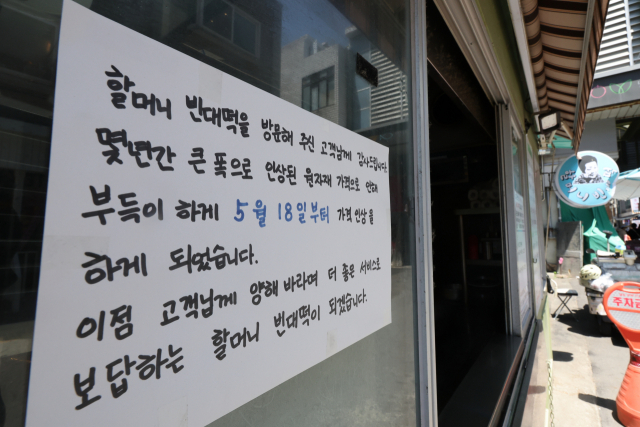 할머니 빈대떡을 방문해 주신 고객님께 감사드립니다
몇년간 큰 폭으로 인상된 원자재 가격으로 인해
부득이 하게 5월 18일부터 가격 인상을
하게 되었습니다.
이점 고객님께 양해 바라며 더 좋은 서비스로
보답하는 할머니 빈대떡이 되겠습니다.